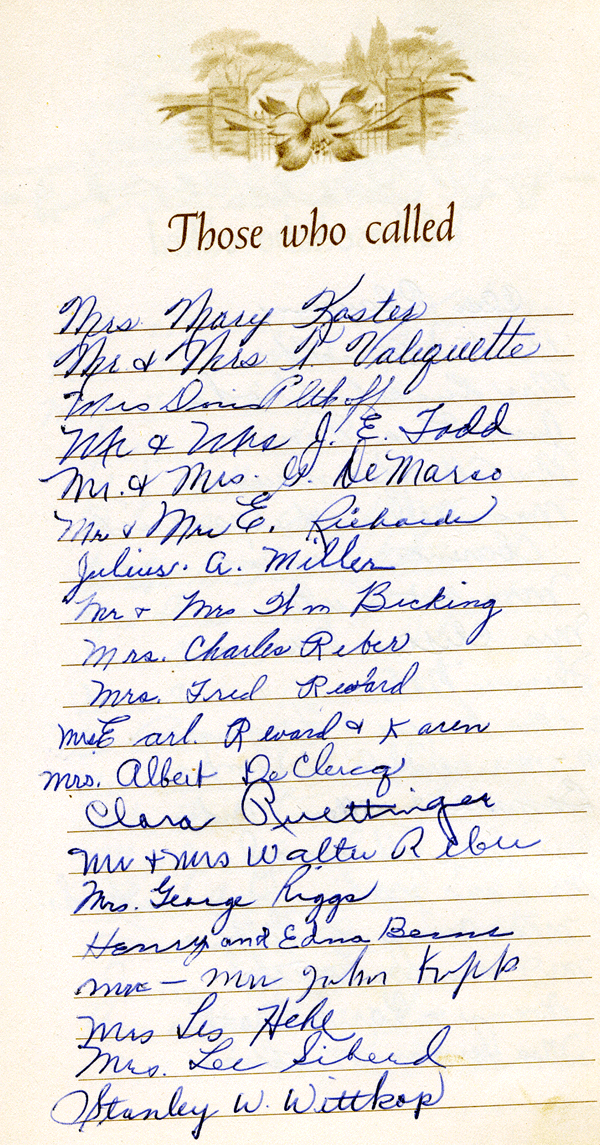 Those who called
Mrs. Mary Koster
Mr. & Mrs R. Valequette
Mrs Doris
Mr & Mrs J. E. Todd
Mr. & Mrs. G. DeMarco
Mr & Mrs E. Richards
Julius. A. Miller
Mr & Mrs Wm Bicking
Mrs. Charles Reber
Mrs. Fred Reward
Mrs Earl. Reward & Karen
Mrs. Albert DeClercq
Clara Ruettinger
Mr & Mrs Walter Reber
Mrs. George Riggs
Henry and Edna Berns
Mr – Mrs John Kopp
Mrs Les Hehl
Mrs. Lee Siberd
Stanley W. Wittkop